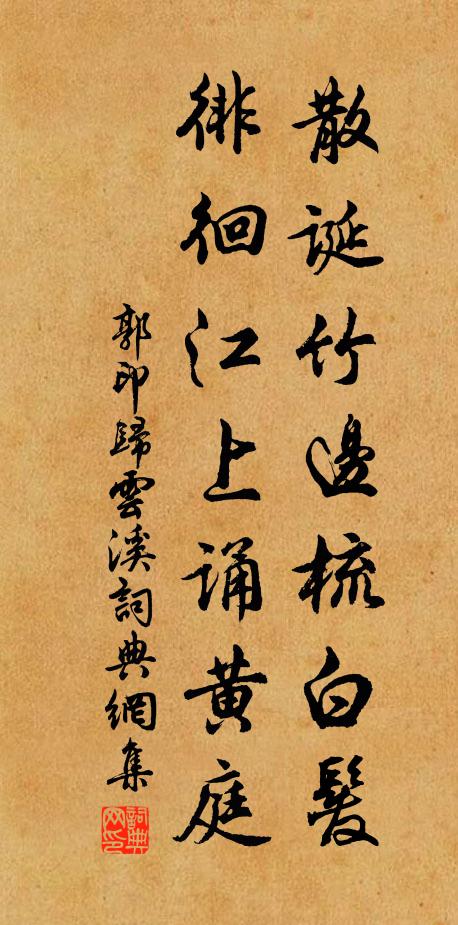 散誕竹邊梳白髮
徘徊江上誦黃庭
郭印歸雲溪詞典網集
詞典網印